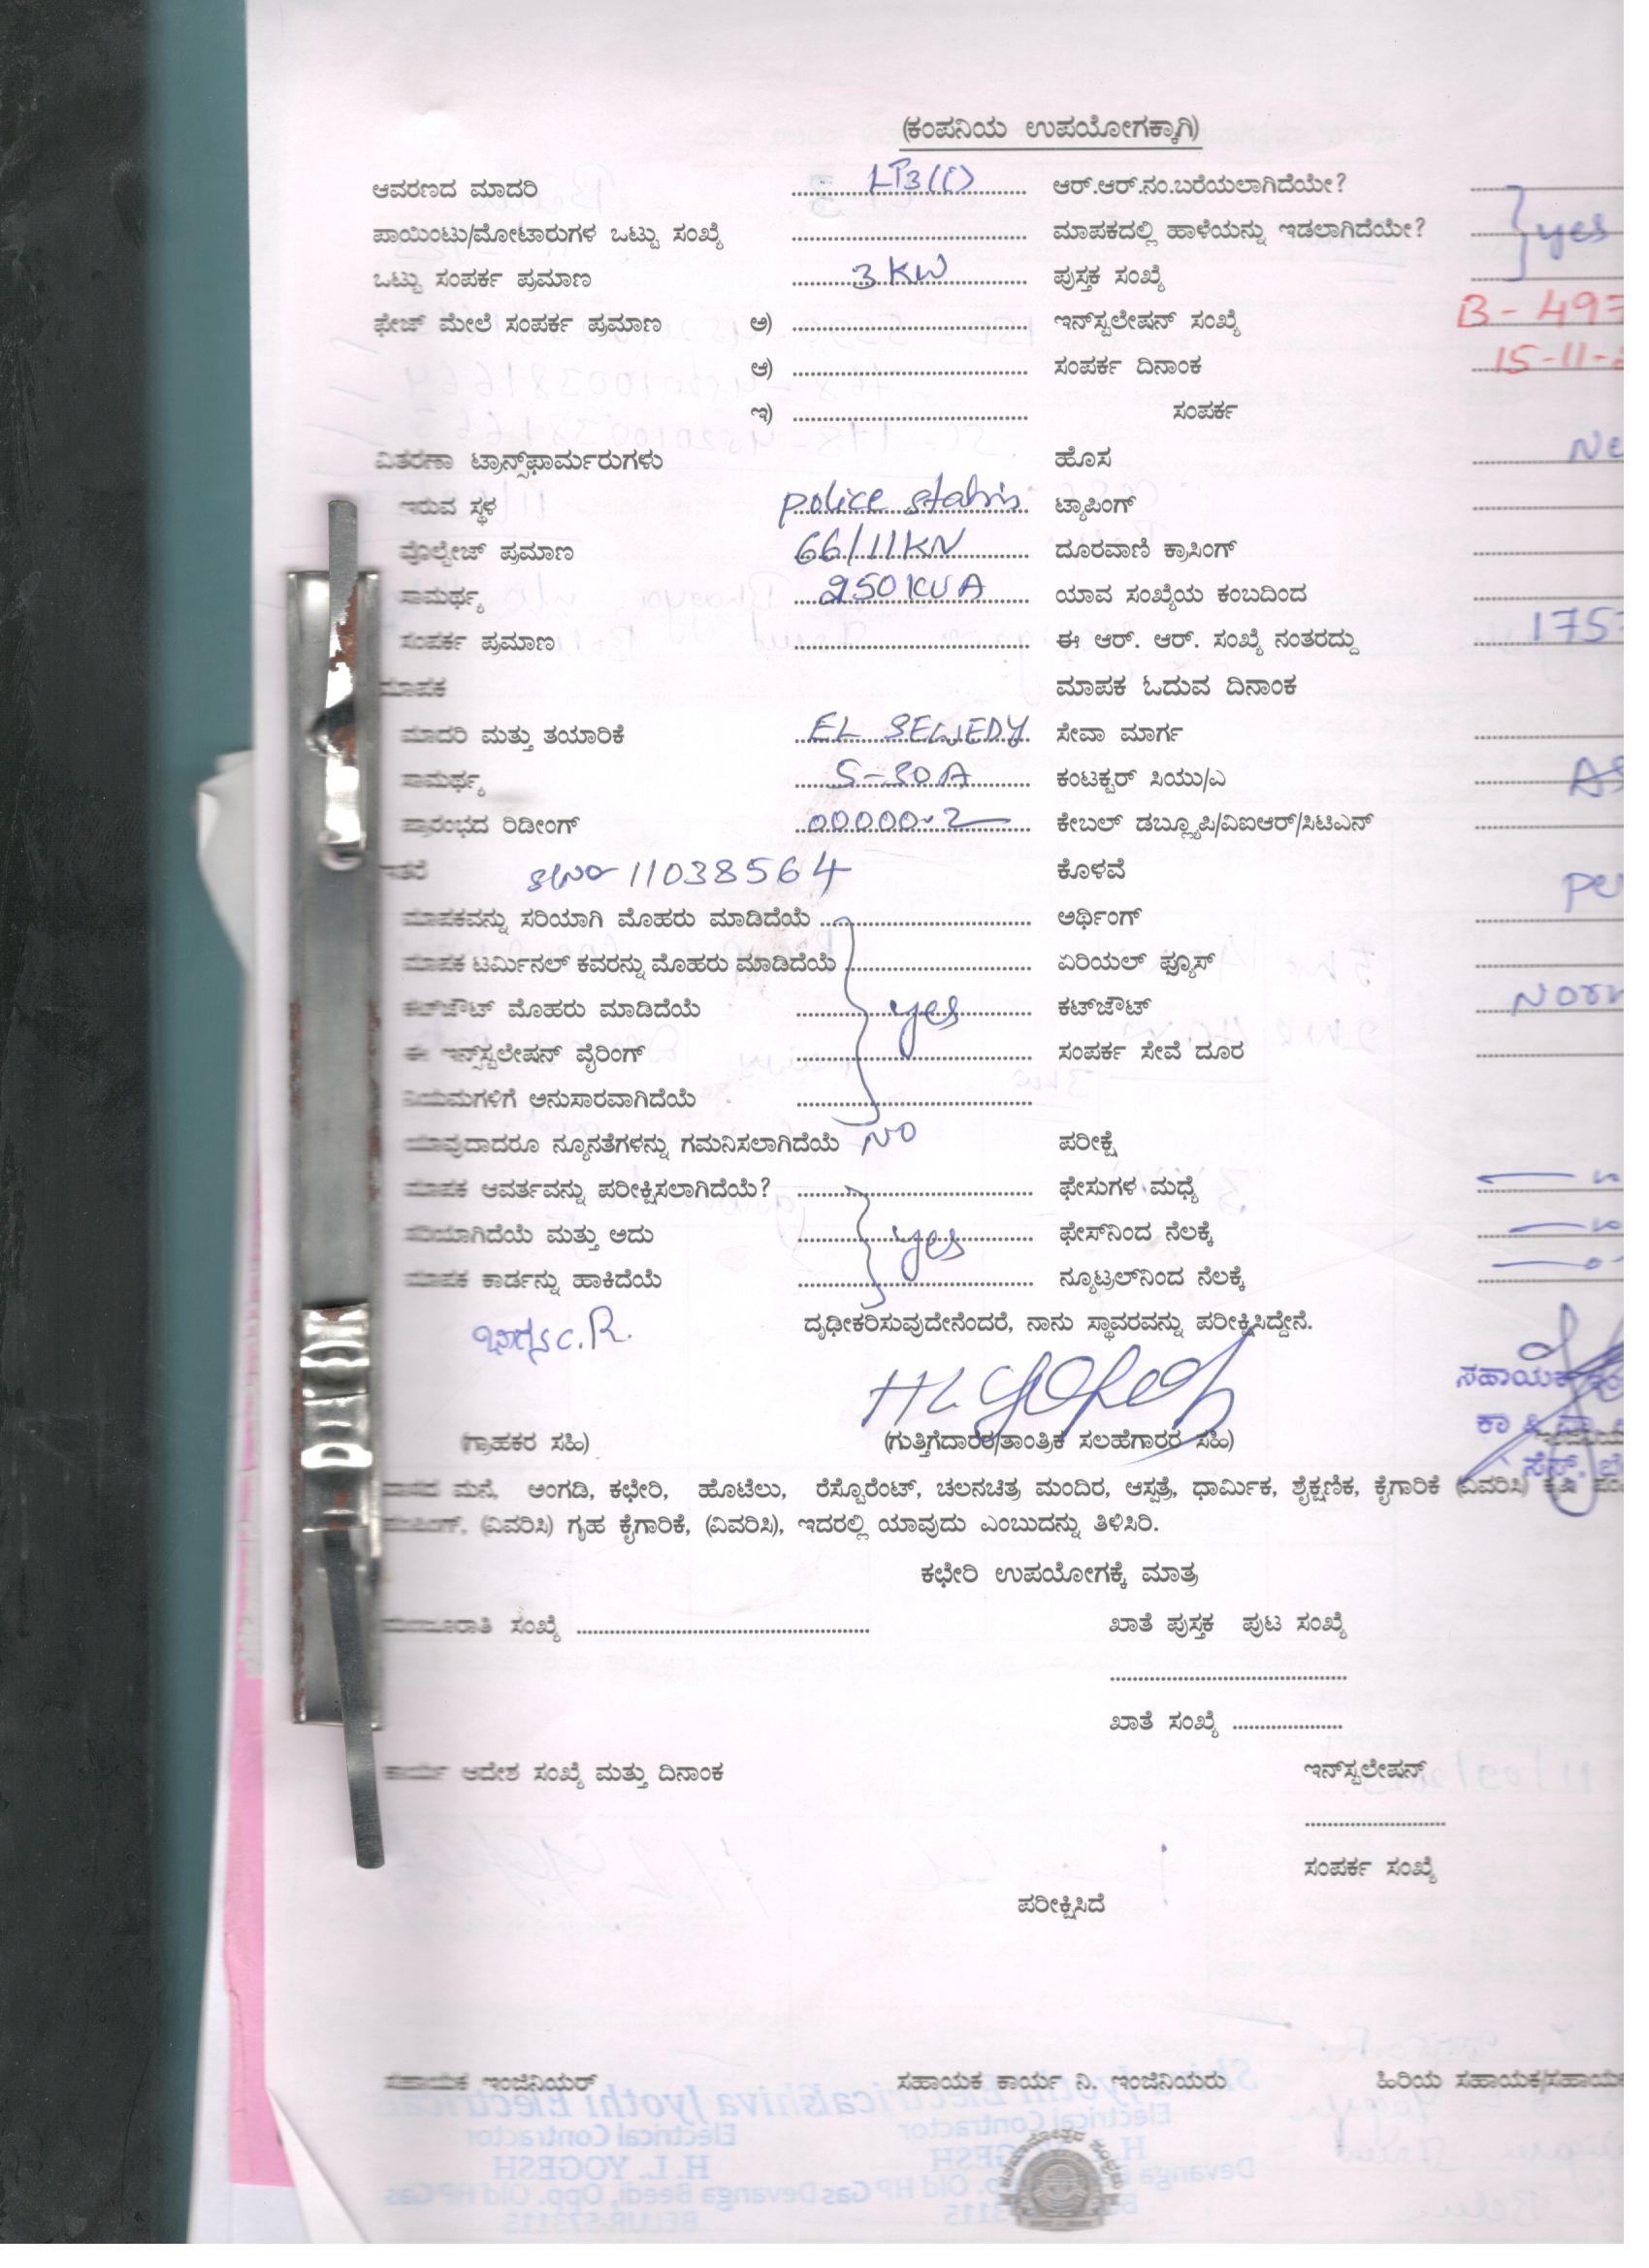 (ಕಂಪನಿಯ ಉಪಯೋಗಕ್ಕಾಗಿ)
ಆವರಣದ ಮಾದರಿ LT3(i) ಆರ್.ಆರ್.ನಂ.ಬರೆಯಲಾಗಿದೆಯೇ?
ಪಾಯಿಂಟು/ಮೋಟಾರುಗಳ ಒಟ್ಟು ಸಂಖ್ಯೆ ಮಾಪಕದಲ್ಲಿ ಹಾಳೆಯನ್ನು ಇಡಲಾಗಿದೆಯೇ? yes
ಒಟ್ಟು ಸಂಪರ್ಕ ಪ್ರಮಾಣ 3 KW ಪುಸ್ತಕ ಸಂಖ್ಯೆ
ಫೇಜ್ ಮೇಲೆ ಸಂಪರ್ಕ ಪ್ರಮಾಣ ಅ) ಇನ್‌ಸ್ಟಲೇಷನ್ ಸಂಖ್ಯೆ B-497
ಆ) ಸಂಪರ್ಕ ದಿನಾಂಕ 15-11-
ಇ) ಸಂಪರ್ಕ
ವಿತರಣಾ ಟ್ರಾನ್ಸ್‌ಫಾರ್ಮರುಗಳು ಹೊಸ Ne
ಇರುವ ಸ್ಥಳ police ಟ್ಯಾಪಿಂಗ್
ವೊಲ್ಟೇಜ್ ಪ್ರಮಾಣ 66/11KV ದೂರವಾಣಿ ಕ್ರಾಸಿಂಗ್
ಸಾಮರ್ಥ್ಯ 250 KVA ಯಾವ ಸಂಖ್ಯೆಯ ಕಂಬದಿಂದ
ಸಂಪರ್ಕ ಪ್ರಮಾಣ ಈ ಆರ್. ಆರ್. ಸಂಖ್ಯೆ ನಂತರದ್ದು 1757
ಮಾಪಕ ಮಾಪಕ ಓದುವ ದಿನಾಂಕ
ಮಾದರಿ ಮತ್ತು ತಯಾರಿಕೆ EL SEWEDY ಸೇವಾ ಮಾರ್ಗ
ಸಾಮರ್ಥ್ಯ 5-30A ಕಂಟಕ್ಟರ್ ಸಿಯು/ಎ AS
ಪ್ರಾರಂಭದ ರಿಡೀಂಗ್ 00000.2 ಕೇಬಲ್ ಡಬ್ಲ್ಯೂಪಿ/ವಿಐಆರ್/ಸಿಟಿಎನ್
ಇತರೆ SlNo-11038564 ಕೊಳವೆ
ಮಾಪಕವನ್ನು ಸರಿಯಾಗಿ ಮೊಹರು ಮಾಡಿದೆಯೆ ಅರ್ಥಿಂಗ್
ಮಾಪಕ ಟರ್ಮಿನಲ್ ಕವರನ್ನು ಮೊಹರು ಮಾಡಿದೆಯೆ ಏರಿಯಲ್ ಫ್ಯೂಸ್
ಕಟ್‌ಜೌಟ್ ಮೊಹರು ಮಾಡಿದೆಯೆ yes ಕಟ್‌ಜೌಟ್
ಈ ಇನ್ಸ್‌ಸ್ಟಲೇಷನ್ ವೈರಿಂಗ್ ಸಂಪರ್ಕ ಸೇವೆ ದೂರ
ನಿಯಮಗಳಿಗೆ ಅನುಸಾರವಾಗಿದೆಯೆ
ಯಾವುದಾದರೂ ನ್ಯೂನತೆಗಳನ್ನು ಗಮನಿಸಲಾಗಿದೆಯೆ NO ಪರೀಕ್ಷೆ
ಮಾಪಕ ಆವರ್ತವನ್ನು ಪರೀಕ್ಷಿಸಲಾಗಿದೆಯೆ? ಫೇಸುಗಳ ಮಧ್ಯೆ
ಸರಿಯಾಗಿದೆಯೆ ಮತ್ತು ಅದು yes ಫೇಸ್‌ನಿಂದ ನೆಲಕ್ಕೆ
ಮಾಪಕ ಕಾರ್ಡನ್ನು ಹಾಕಿದೆಯೆ ನ್ಯೂಟ್ರಲ್‌ನಿಂದ ನೆಲಕ್ಕೆ
ದೃಢೀಕರಿಸುವುದೇನೆಂದರೆ, ನಾನು ಸ್ಥಾವರವನ್ನು ಪರೀಕ್ಷಿಸಿದ್ದೇನೆ.
C.R.
ಸಹಾಯಕ
(ಗ್ರಾಹಕರ ಸಹಿ) (ಗುತ್ತಿಗೆದಾರರ/ತಾಂತ್ರಿಕ ಸಲಹೆಗಾರರ ಸಹಿ)
ವಾಸದ ಮನೆ, ಅಂಗಡಿ, ಕಛೇರಿ, ಹೊಟೆಲು, ರೆಸ್ಟೊರೆಂಟ್, ಚಲನಚಿತ್ರ ಮಂದಿರ, ಆಸ್ಪತ್ರೆ, ಧಾರ್ಮಿಕ, ಶೈಕ್ಷಣಿಕ, ಕೈಗಾರಿಕೆ (ವಿವರಿಸಿ) ಕೃಷಿ
(ವಿವರಿಸಿ) ಗೃಹ ಕೈಗಾರಿಕೆ, (ವಿವರಿಸಿ), ಇದರಲ್ಲಿ ಯಾವುದು ಎಂಬುದನ್ನು ತಿಳಿಸಿರಿ.
ಕಛೇರಿ ಉಪಯೋಗಕ್ಕೆ ಮಾತ್ರ
ಮಂಜೂರಾತಿ ಸಂಖ್ಯೆ ಖಾತೆ ಪುಸ್ತಕ ಪುಟ ಸಂಖ್ಯೆ
ಖಾತೆ ಸಂಖ್ಯೆ
ಕಾರ್ಯ ಆದೇಶ ಸಂಖ್ಯೆ ಮತ್ತು ದಿನಾಂಕ ಇನ್‌ಸ್ಟಲೇಷನ್
ಸಂಪರ್ಕ ಸಂಖ್ಯೆ
ಪರೀಕ್ಷಿಸಿದೆ
ಸಹಾಯಕ ಇಂಜಿನಿಯರ್ ಸಹಾಯಕ ಕಾರ್ಯ ನಿ. ಇಂಜಿನಿಯರು ಹಿರಿಯ ಸಹಾಯಕ/ಸಹಾಯಕ